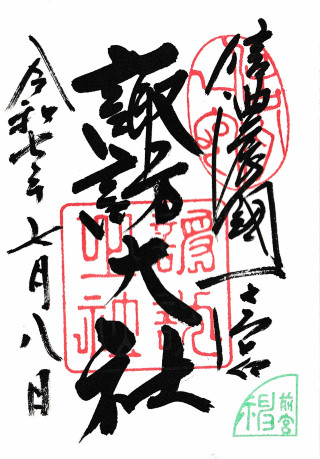 信濃國一之宮
諏訪大社
令和七年七月八日
前宮